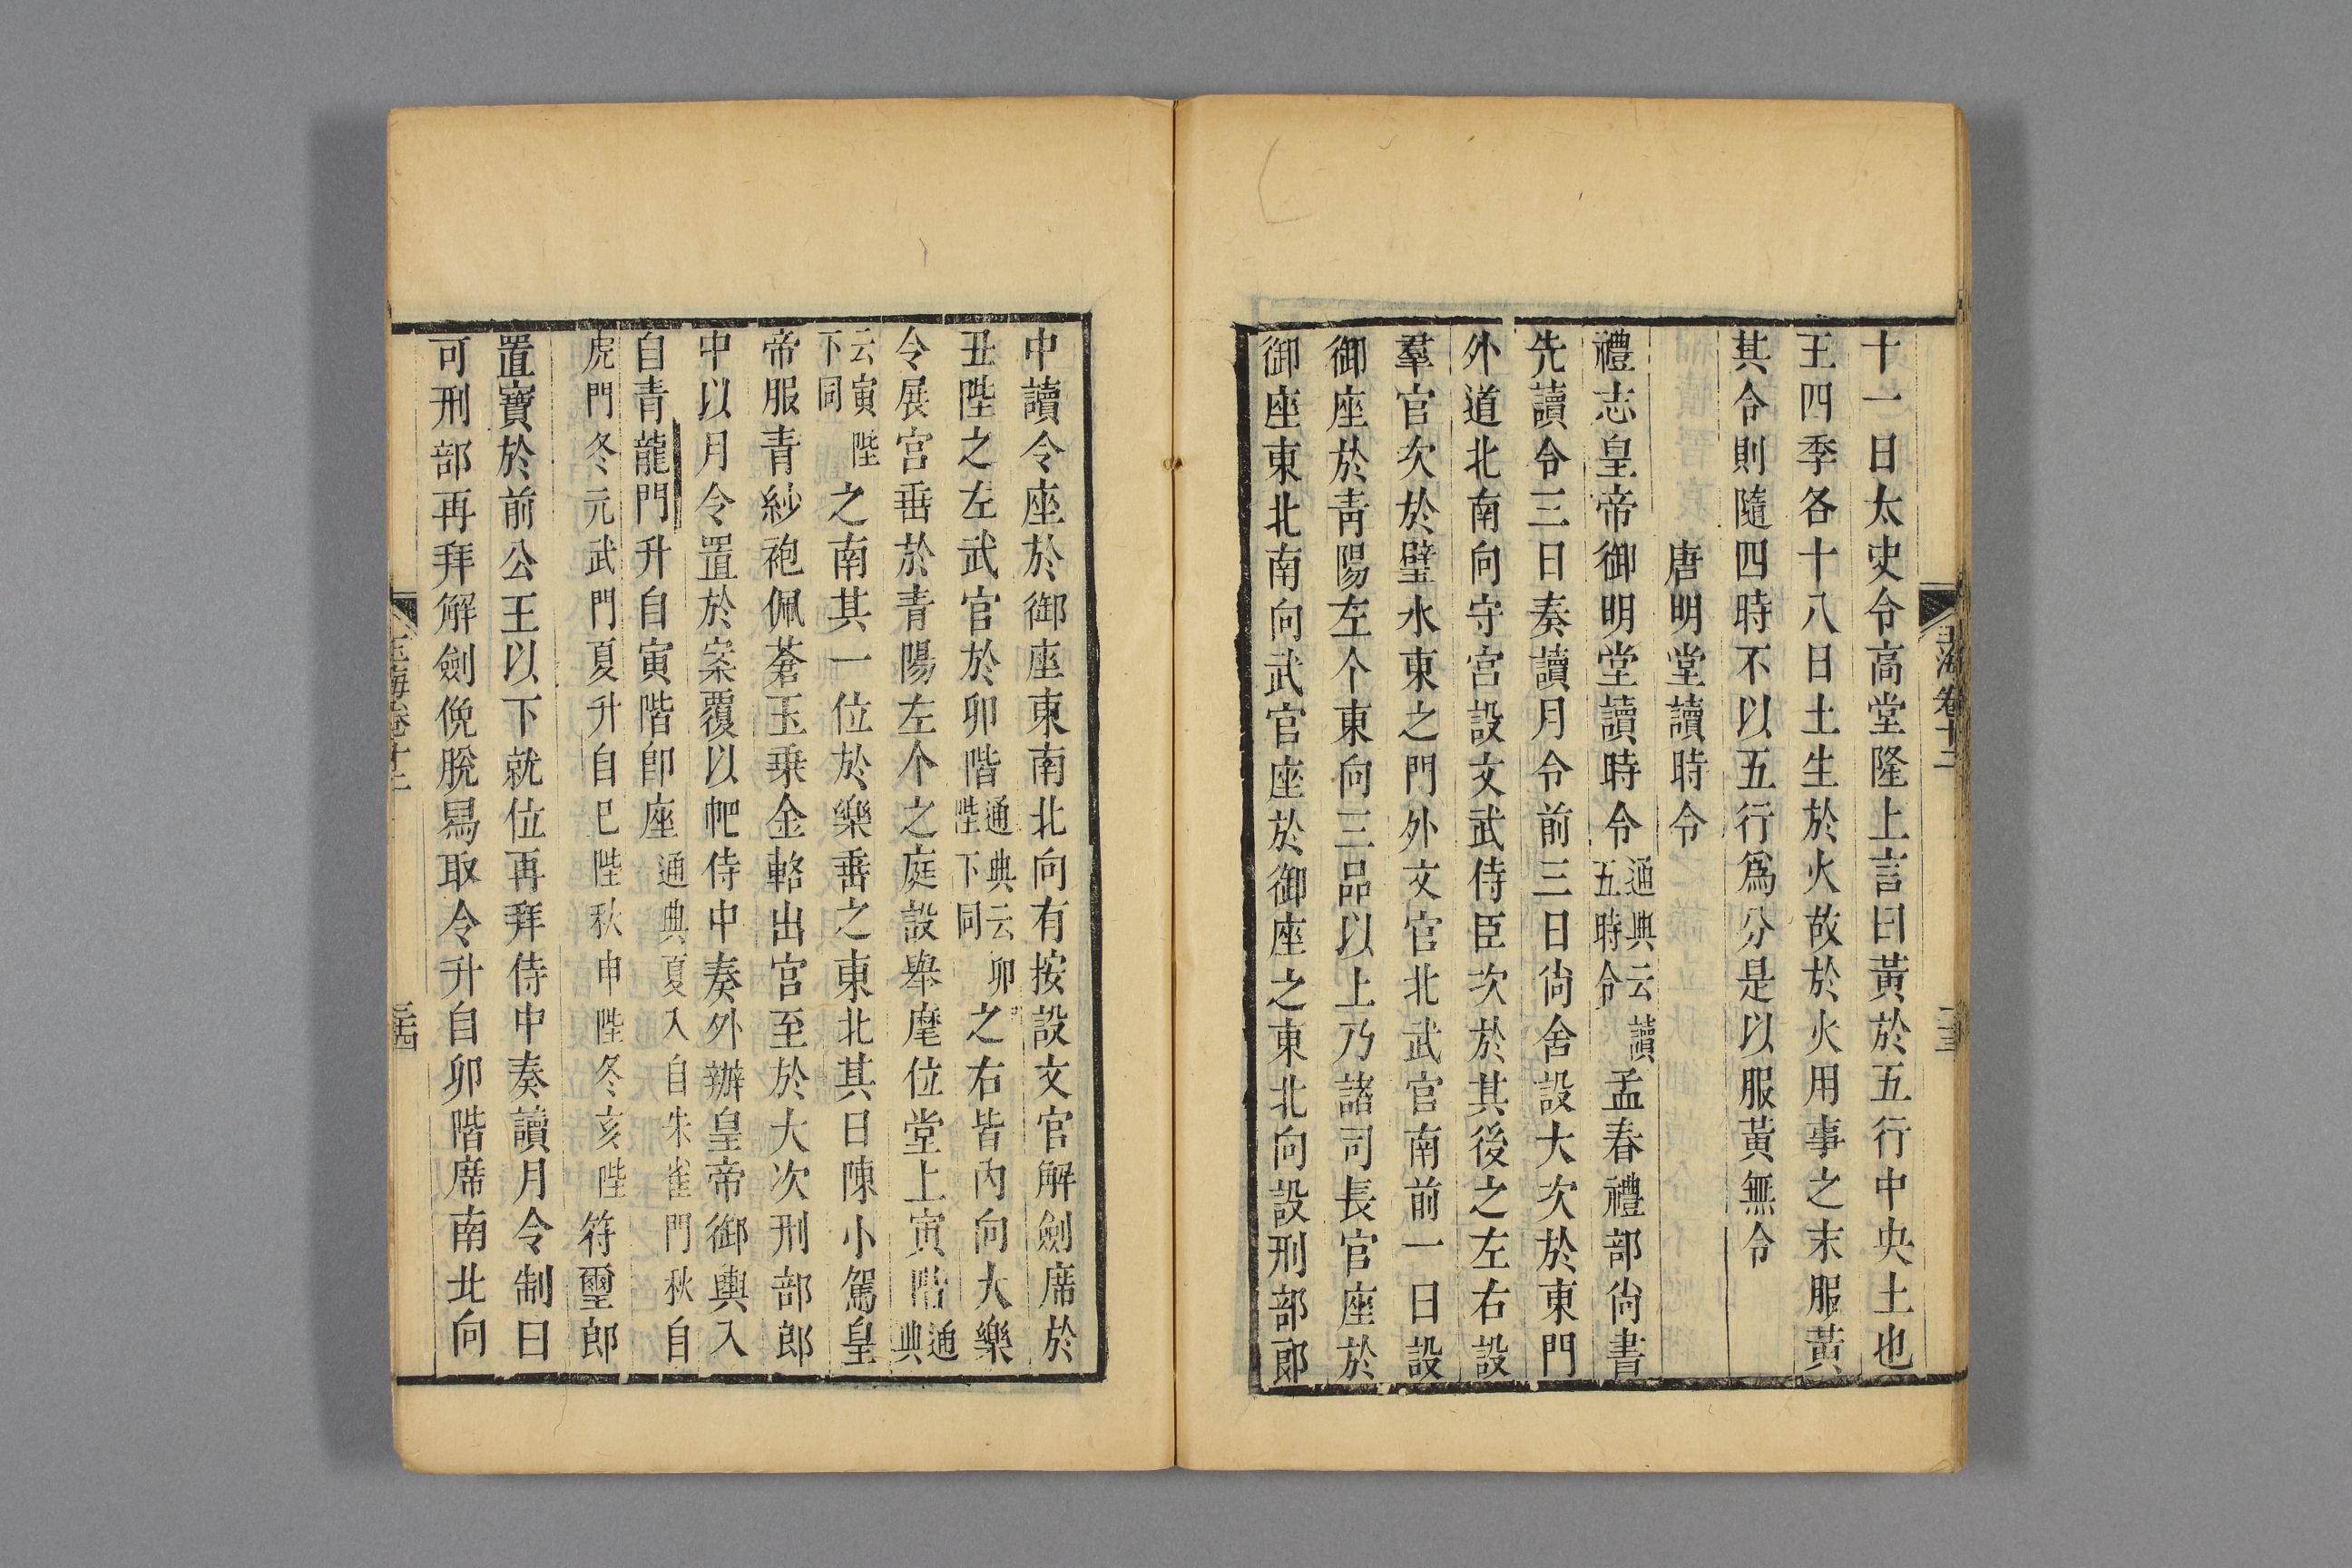 玉海卷十二
十一日太史令高堂隆上言曰黃於五行中央土也
王四季各十八日土生於火故於火用事之末服黃
其令則隨四時不以五行爲分是以服黃無令
唐明堂讀時令
禮志皇帝御明堂讀時令通典云讀五時令孟春禮部尙書
先讀令三日奏讀月令前三日尙舍設大次於東門
外道北南向守宮設文武侍臣次於其後之左右設
羣官次於璧水東之門外文官北武官南前一日設
御座於靑陽左个東向三品以上乃諸司長官座於
御座東北南向武官座於御座之東北向設刑部郞
中讀令座於御座東南北向有按設文官解劍席於
丑陛之左武官於卯階通典云卯陛下同之右皆內向大樂
令展宮垂於青陽左个之庭設舉麾位堂上寅階通典
云寅陛下同之南其一位於樂垂之東北其日陳小駕皇
帝服青紗袍佩蒼玉乗金輅出宮至於大次刑部郎
中以月令置於案覆以帊侍中奏外辦皇帝御輿入
自青龍門升自寅階卽座通典夏入自朱雀門秋自
虎門冬元武門夏升自巳陛秋申陛冬亥陛符璽郎
置寶於前公王以下就位再拜侍中奏讀月令制曰
可刑部再拜解劍俛脫舄取令升自卯階席南北向
玉海卷十二